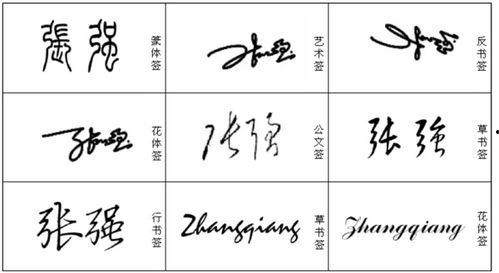 張强
篆体签
张强
艺术签
张强
反书签
张强
花体签
张强
公文签
张強
草书签
张强
行书签
Zhangqiang
草书签
Zhangqiang
花体签